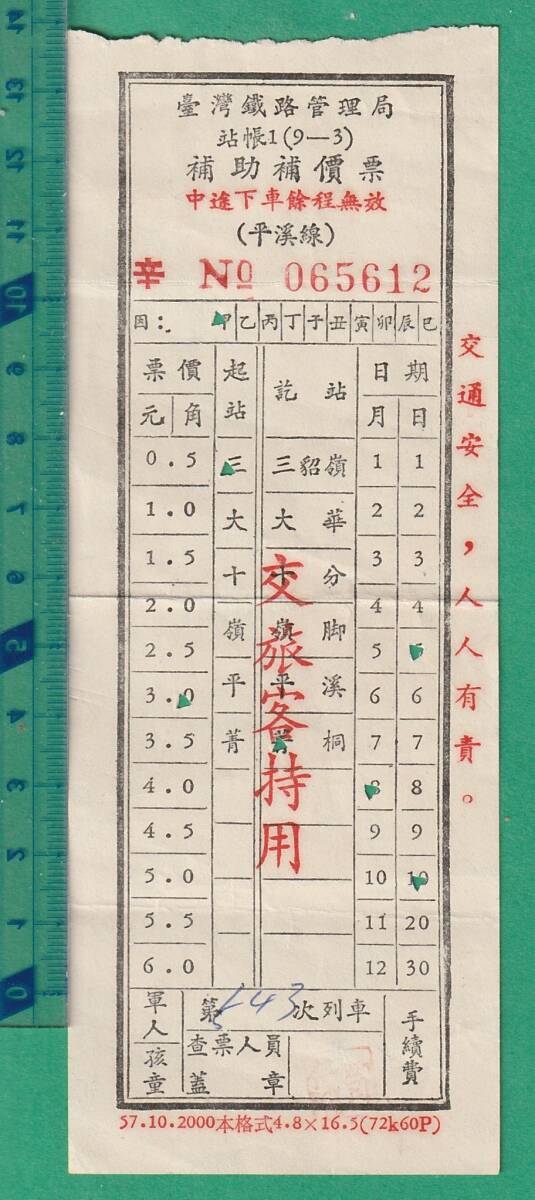 臺灣鐵路管理局
站帳1(9—3)
補助補價票
中途下車餘程無效
(平溪線)
辛 No 065612
因: 甲 乙 丙 丁 子 丑 寅 卯 辰 巳
票價 起站 訖站 日期
元 角 月 日
0.5 三 三貂嶺 1 1
1.0 大 大華 2 2
1.5 十 十分 3 3
2.0 嶺 嶺脚 4 4
2.5 平 平溪 5
3.0 菁 菁桐 6 6
3.5 7 7
4.0 8 8
4.5 9 9
5.0 10 10
5.5 11 20
6.0 12 30
交旅客持用
軍人孩童
第 543 次列車
查票人員
蓋章
手續費
57.10.2000本格式4.8×16.5(72k60P)
交通安全，人人有責。
14
13
12
11
10
9
8
7
6
5
4
3
2
1
0